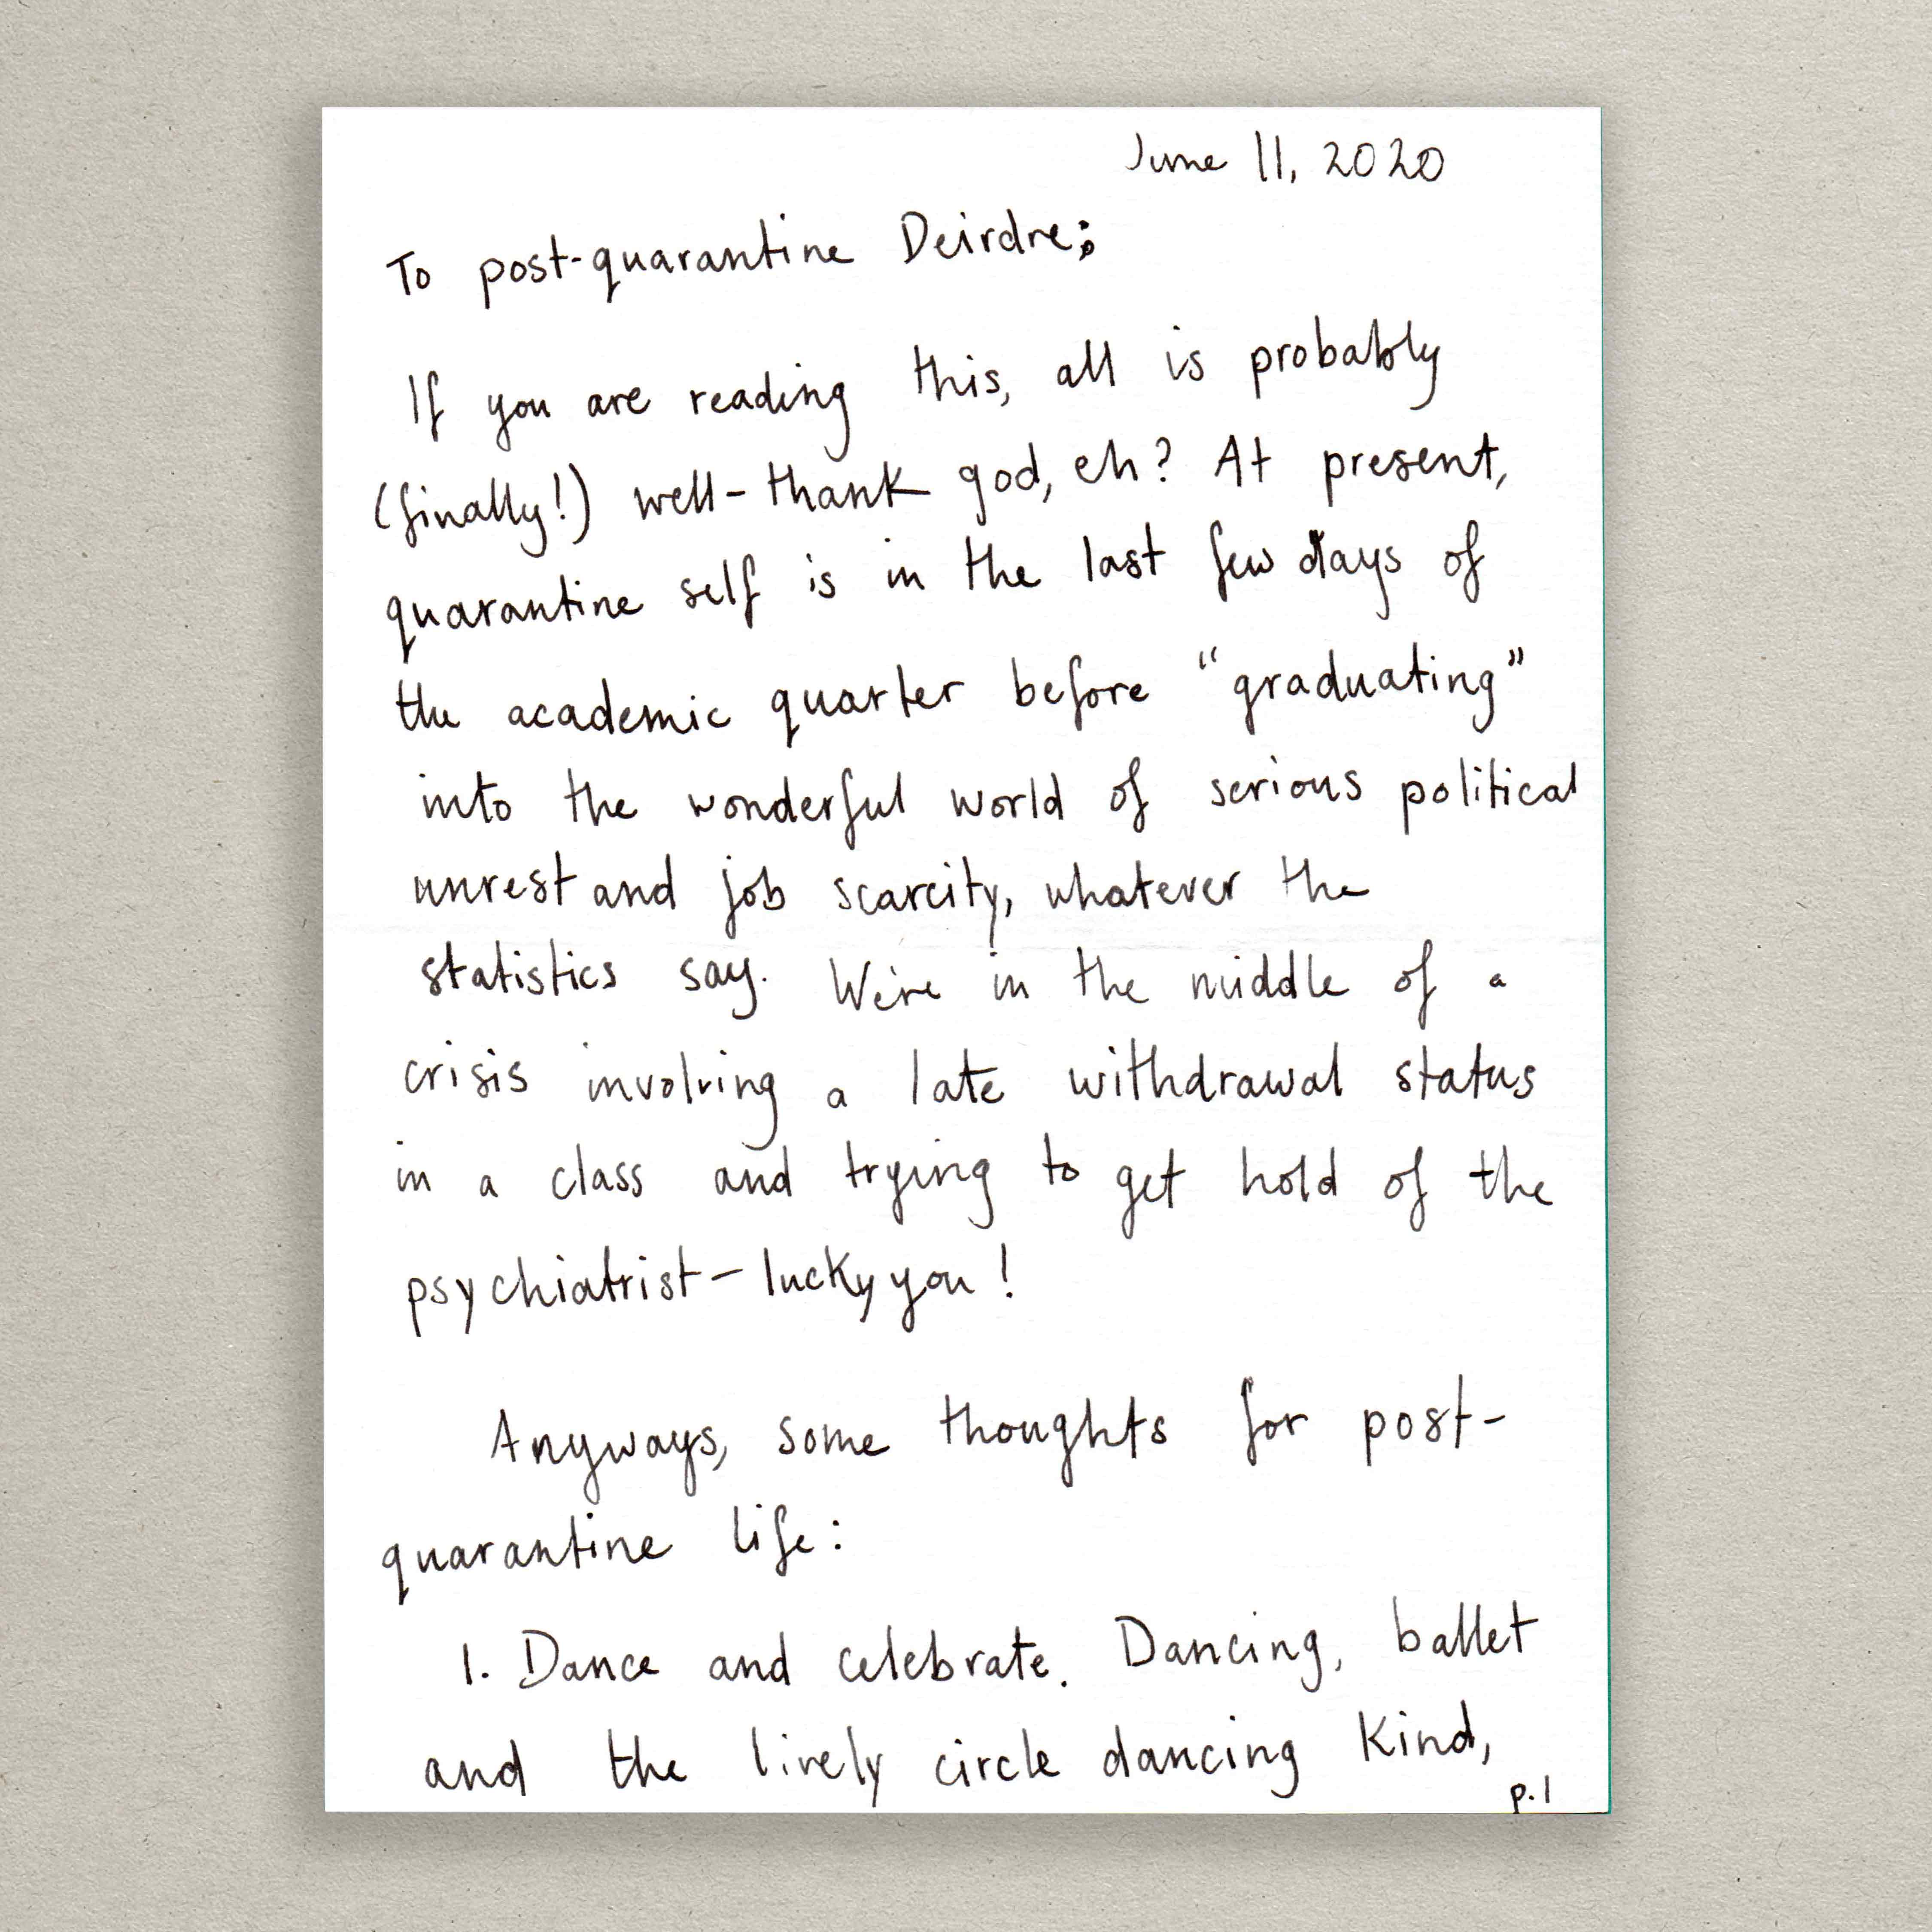 June 11, 2020
To post-quarantine Deirdre;
If you are reading this, all is probably
(finally!) well - thank god, eh? At present,
quarantine self is in the last few days of
the academic quarter before "graduating"
into the wonderful world of serious political
unrest and job scarcity, whatever the
statistics say. We're in the middle of a
crisis involving a late withdrawal status
in a class and trying to get hold of the
psychiatrist - lucky you!
Anyways, some thoughts for post-
quarantine life:
1. Dance and celebrate. Dancing, ballet
and the lively circle dancing kind,
p.1